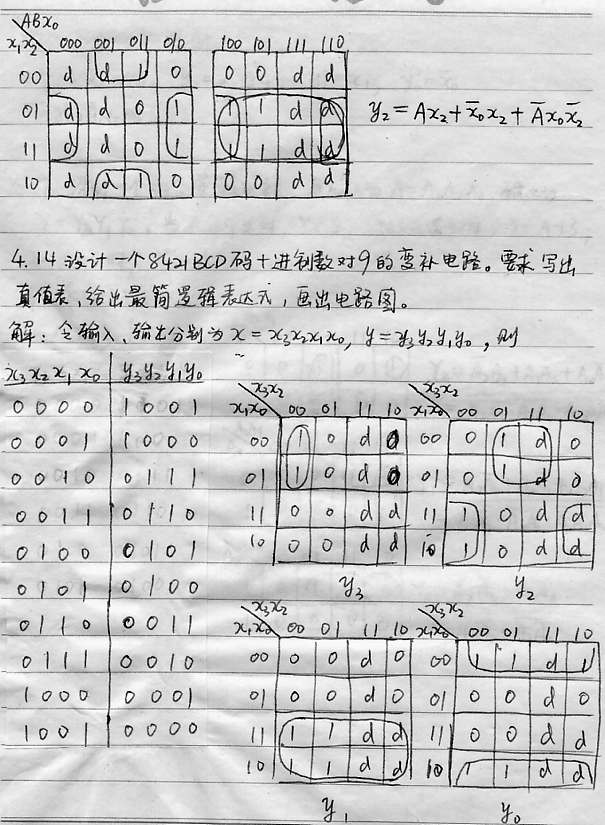 ABx₀
x₁x₂ 000 001 011 010 100 101 111 110
00 d d 1 0 0 0 d d
01 d d 0 1 1 1 d d
11 d d 0 1 1 1 d d
10 d d 1 0 0 0 d d
y₂ = Ax₂ + x̄₀x₂ + Āx₀x̄₂
4.14 设计一个8421BCD码十进制数对9的变补电路。要求写出
真值表,给出最简逻辑表达式,画出电路图。
解:令输入、输出分别为 x = x₃x₂x₁x₀, y = y₃y₂y₁y₀,则
x₃x₂x₁x₀ y₃y₂y₁y₀
0000 1001
0001 1000
0010 0111
0011 0110
0100 0101
0101 0100
0110 0011
0111 0010
1000 0001
1001 0000
x₃x₂
x₁x₀ 00 01 11 10
00 1 0 d 0
01 1 0 d 0
11 0 0 d d
10 0 0 d d
y₃
x₃x₂
x₁x₀ 00 01 11 10
00 0 1 d 0
01 0 1 d 0
11 1 0 d d
10 1 0 d d
y₂
x₃x₂
x₁x₀ 00 01 11 10
00 0 0 d 0
01 0 0 d 0
11 1 1 d d
10 1 1 d d
y₁
x₃x₂
x₁x₀ 00 01 11 10
00 1 1 d 1
01 0 0 d 0
11 0 0 d d
10 1 1 d d
y₀